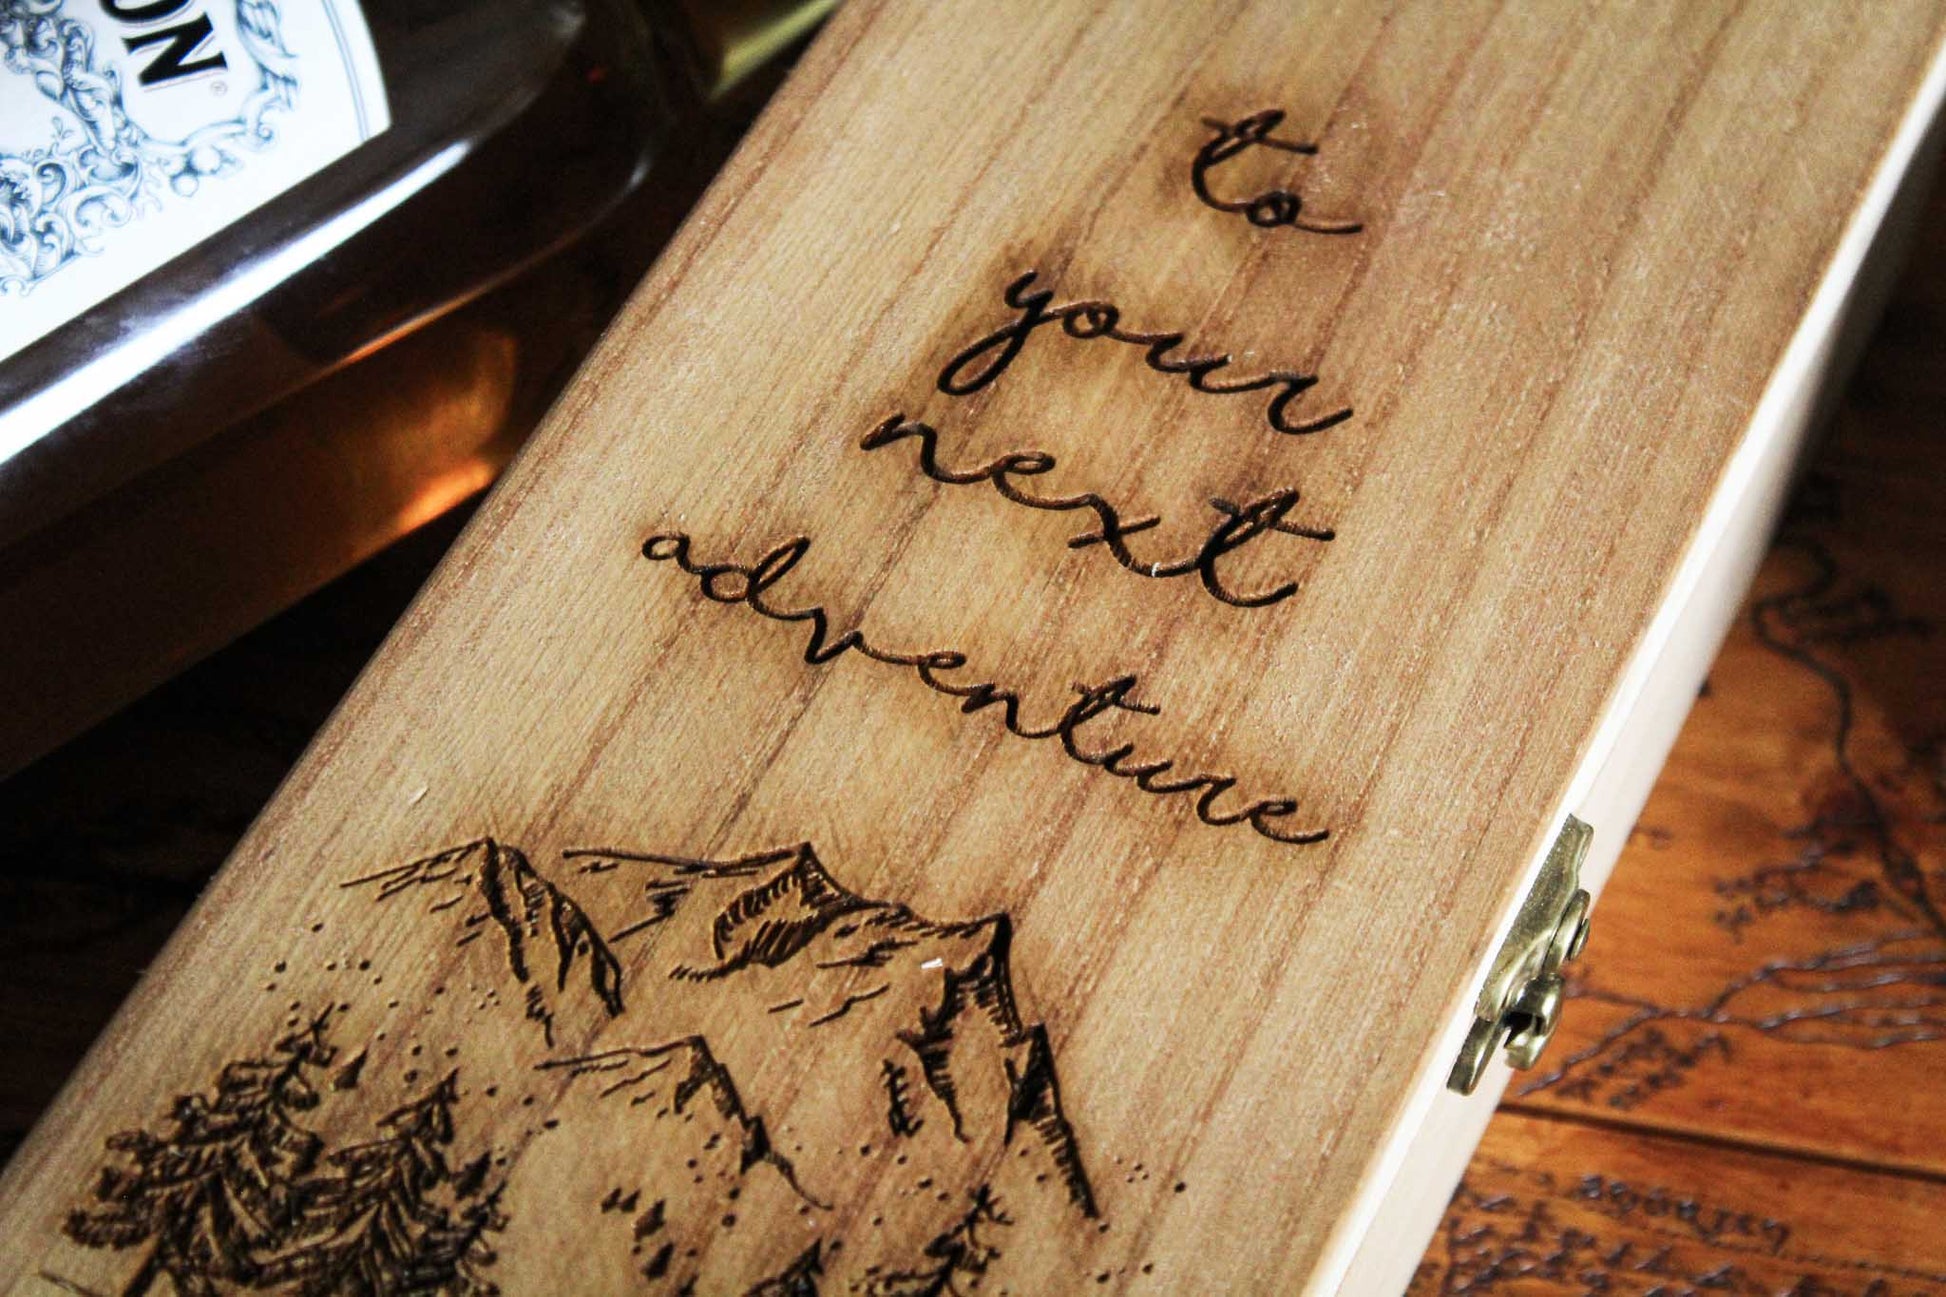 ON
to
your
next
adventure